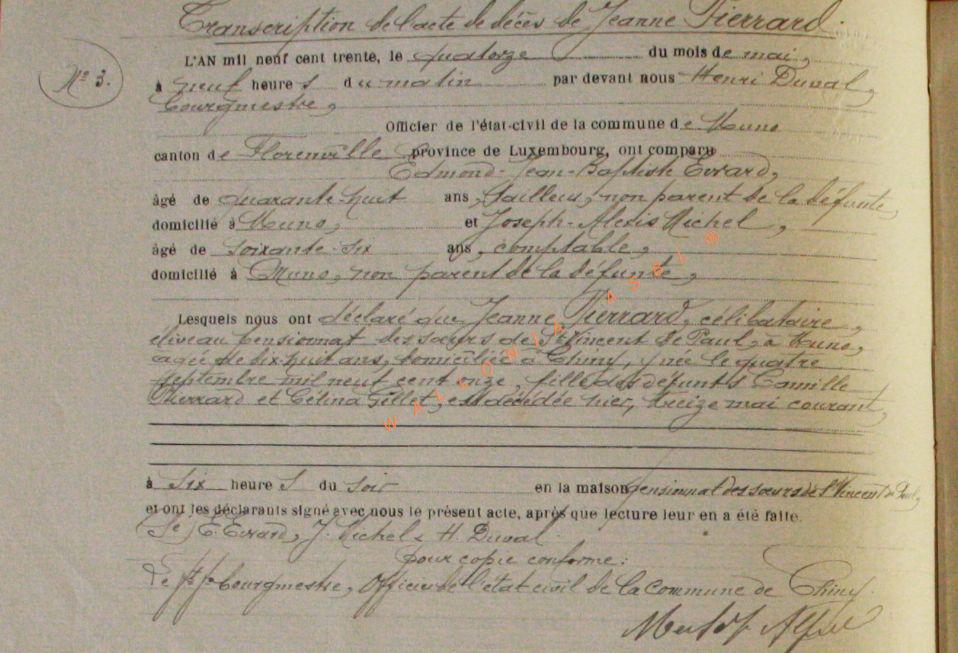 Transcription de l'acte de décès de Jeanne Pierrard.
N° 3.
L'AN mil neuf cent trente, le quatorze du mois de mai,
à neuf heure s du matin par devant nous Henri Duval,
bourgmestre,
Officier de l'état-civil de la commune de Muno
canton de Florenville province de Luxembourg, ont comparu
Edmond-Jean-Baptiste Evrard,
âgé de quarante huit ans, tailleur, non parent de la défunte,
domicilié à Muno, et Joseph-Alexis Michel,
âgé de soixante-six ans, comptable,
domicilié à Muno, non parent de la défunte,
Lesquels nous ont déclaré que Jeanne Pierrard, célibataire,
élève au pensionnat des sœurs de St Vincent de Paul, à Muno,
agée de dix huit ans, domiciliée à Chiny, y née le quatre
septembre mil neuf cent onze, fille des défunts Camille
Pierrard et Célina Gillet, est décédée hier, treize mai courant,
à six heure s du soir en la maison pensionnat des sœurs de St Vincent de Paul,
et ont les déclarants signé avec nous le présent acte, après que lecture leur en a été faite.
E. Evrard, J. Michel, H. Duval.
pour copie conforme:
bourgmestre, Officier de l'état civil de la commune de Chiny.
WALLONIA ASBL